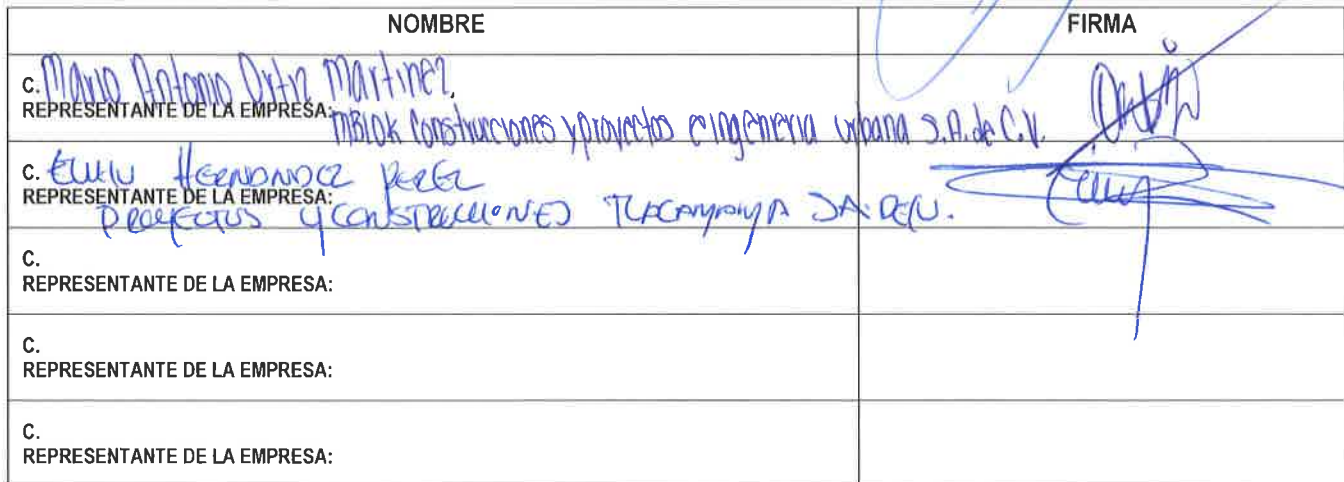 NOMBRE FIRMA
C. Mario Antonio Ortiz Martinez.
REPRESENTANTE DE LA EMPRESA:
mBlok Construcciones y proyectos e ingenieria urbana S.A. de C.V.
C. HERNANDEZ PEREZ
REPRESENTANTE DE LA EMPRESA:
PROYECTOS Y CONSTRUCCIONES SA. DE CV.
C.
REPRESENTANTE DE LA EMPRESA:
C.
REPRESENTANTE DE LA EMPRESA:
C.
REPRESENTANTE DE LA EMPRESA: